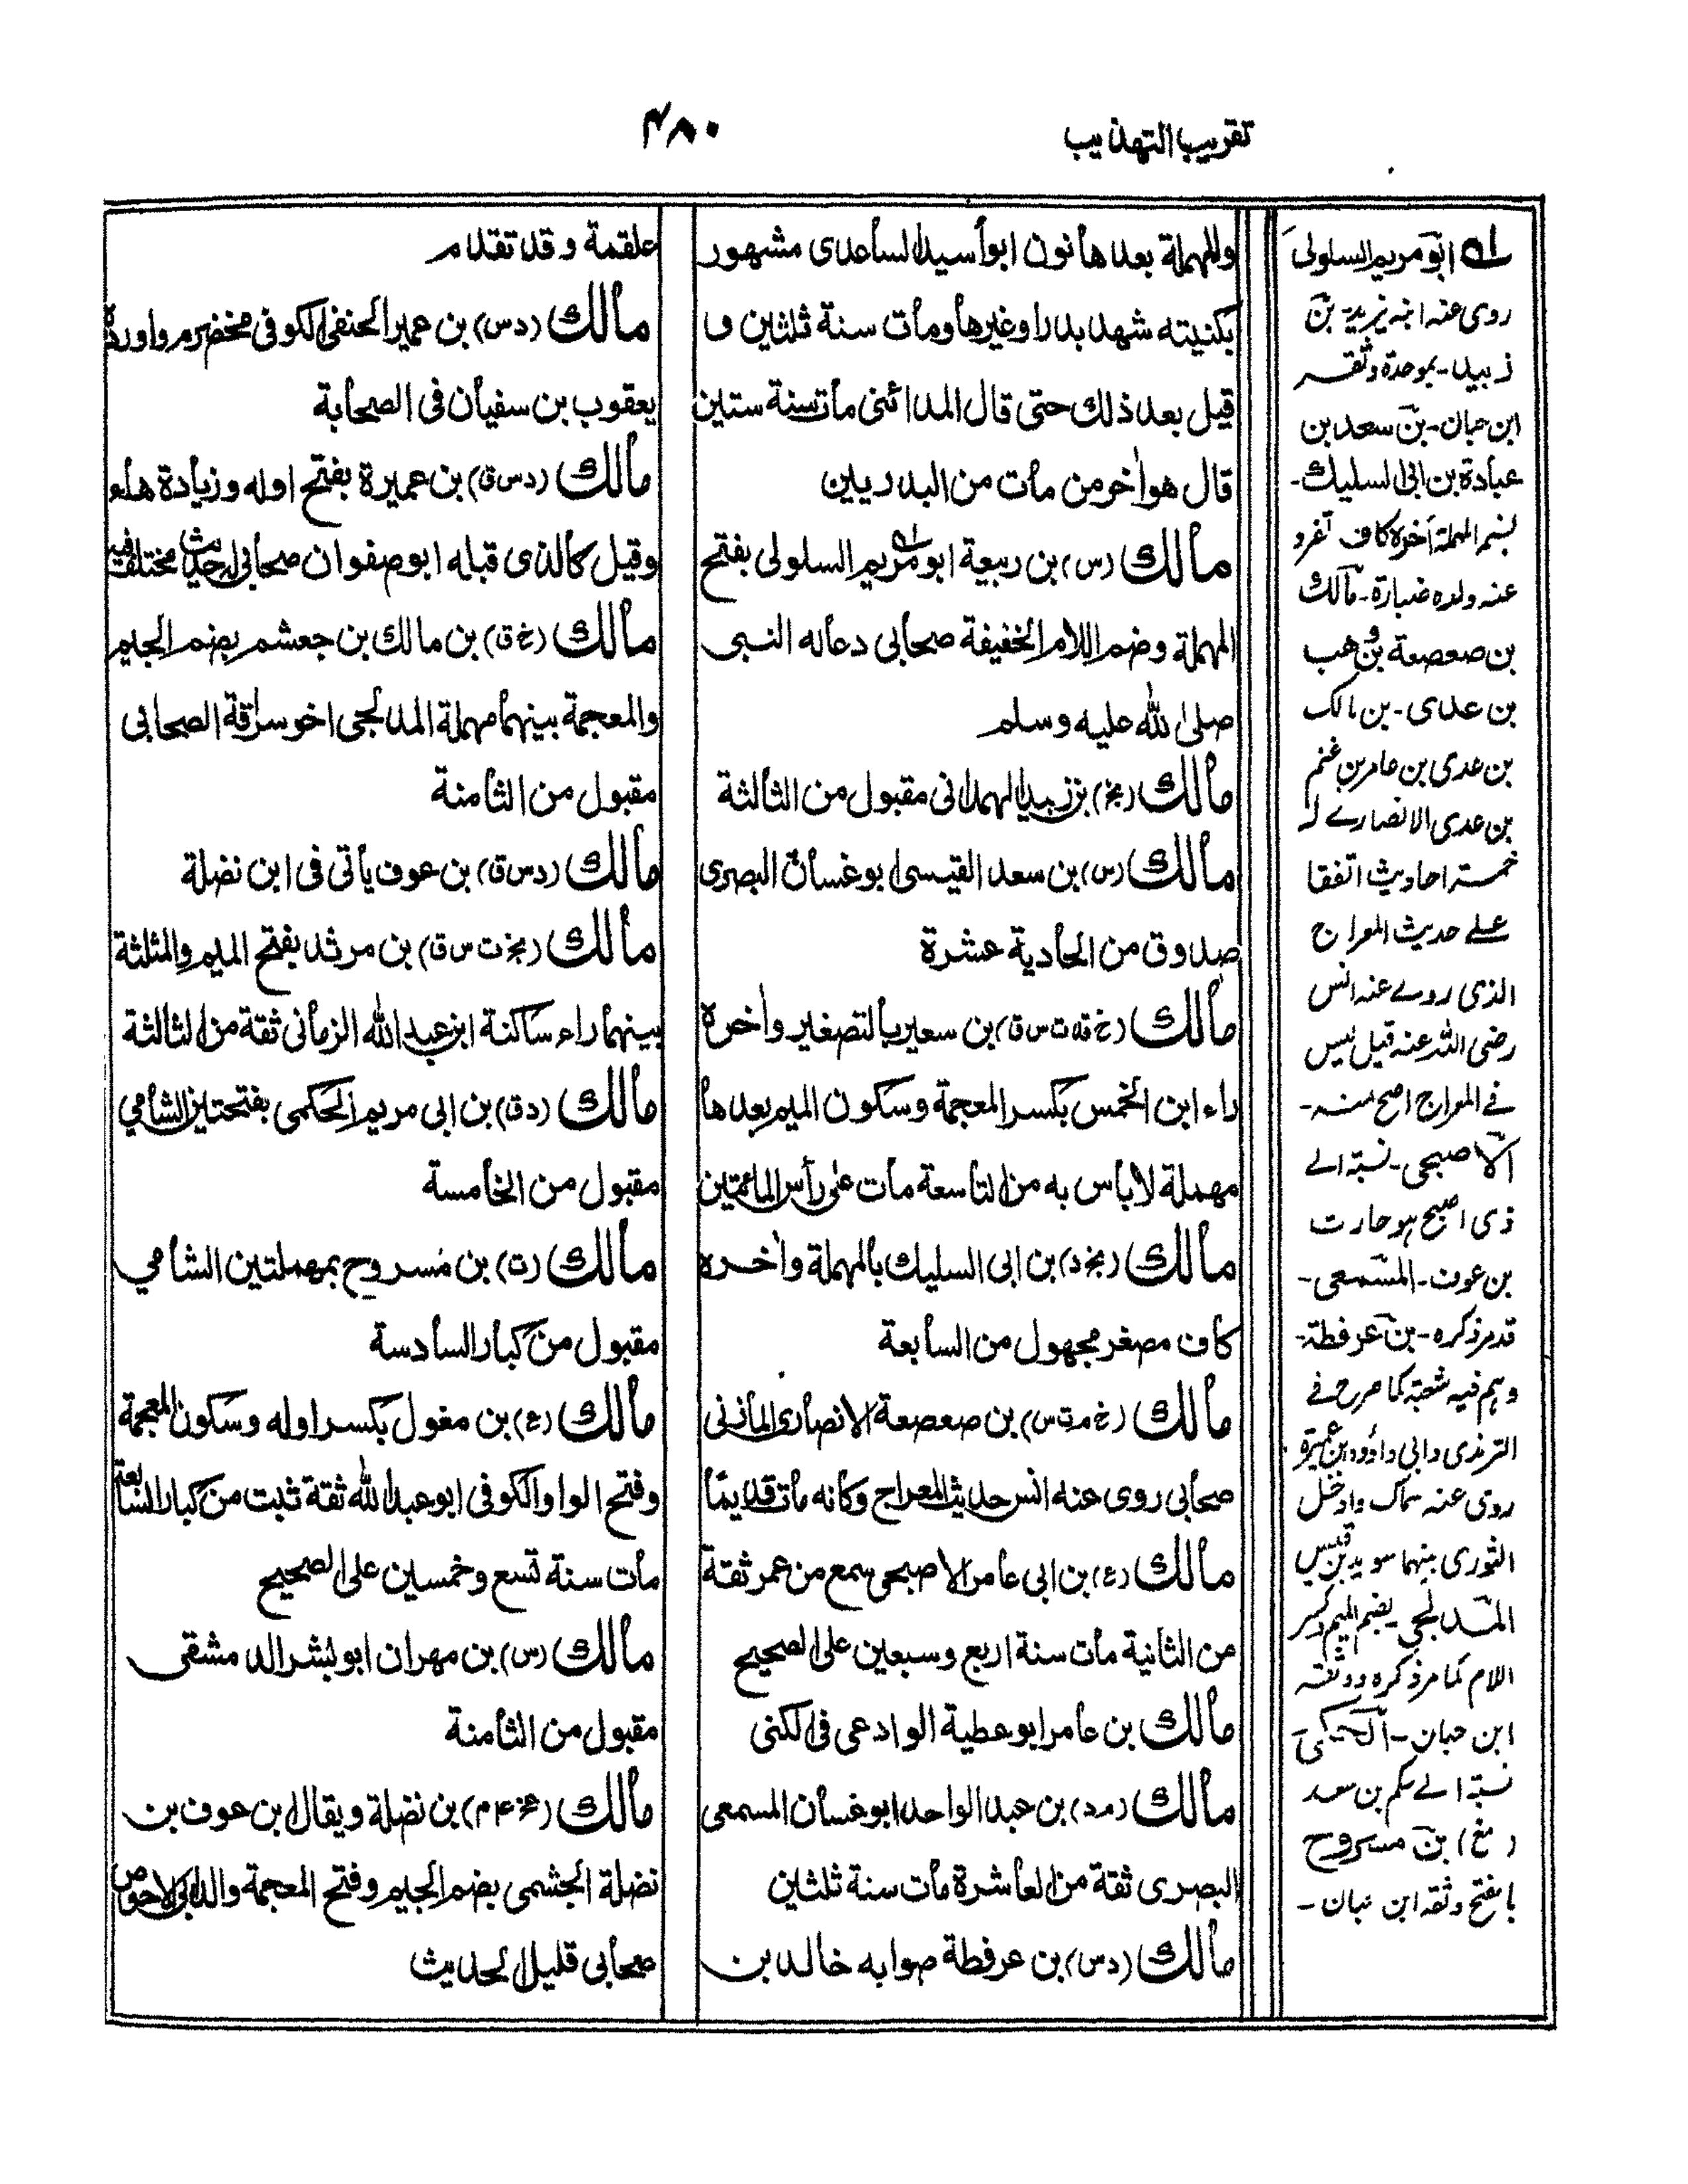 تقریب التهذیب
۴۸۰
وللمهملة بعدها نون ابوأسید الساعدی مشهور
بکنیته شهد بدرا وغیرها ومات سنة ثلثین و
قیل بعد ذلك حتی قال المدائنی مات سنة ستین
قال هو اٰخر من مات من البدریین
مالك (س) بن ربیعة ابو مریم السلولی بفتح
المهملة وضم اللام الخفیفة صحابی دعا له النبی
صلی الله علیه وسلم
مالك (بخ) بن زبید الهمدانی مقبول من الثالثة
مالك (س) بن سعد القیسی ابو غسان البصری
صدوق من الحادیة عشرة
مالك (خ ق ت س ق) بن سعیر بالتصغیر واٰخرہ
راء ابن الخمس بکسر المعجمة وسکون المیم بعدها
مهملة لا بأس به من التاسعة مات علی رأس المائتین
مالك (بخ د) بن ابی السلیك بالمهملة واٰخره
کاف مصغر مجهول من السابعة
مالك (خ م ت س) بن صعصعة الانصاری المازنی
صحابی روی عنه انس حدیث المعراج وکانه مات قدیمًا
مالك (ع) بن ابی عامر الاصبحی سمع من عمر ثقة
من الثانیة مات سنة اربع وسبعین علی الصحیح
مالك بن عامر ابو عطیة الوادعی فی الکنی
مالك (مد) بن عبد الواحد ابو غسان المسمعی
البصری ثقة من العاشرة مات سنة ثلثین
مالك (دس) بن عرفطة صوابه خالد بن
علقمة وقد تقدم
مالك (دس) بن عمیر الحنفی الکوفی مخضرم واوردہ
یعقوب بن سفیان فی الصحابة
مالك (دس ق) بن عمیرة بفتح اوله وزیادة هاء
وقیل کالذی قبله ابو صفوان صحابی له حدیث مختلف فیه
مالك (خ ق) بن مالك بن جعشم بضم الجیم
والمعجمة بینهما مهملة المدلجی اخو سراقة الصحابی
مقبول من الثامنة
مالك (دس ق) بن عوف یأتی فی ابن نضلة
مالك (بخ ت س ق) بن مرثد بفتح المیم والمثلثة
بینهما راء ساکنة ابن عبد الله الزمانی ثقة من الثالثة
مالك (دق) بن ابی مریم الحکمی بفتحتین الشامی
مقبول من الخامسة
مالك (ت) بن مسروح بمهملتین الشامی
مقبول من کبار السادسة
مالك (ع) بن مغول بکسر اوله وسکون المعجمة
وفتح الواو الکوفی ابو عبد الله ثقة ثبت من کبار السابعة
مات سنة تسع وخمسین علی الصحیح
مالك (س) بن مهران ابو بشر الدمشقی
مقبول من الثامنة
مالك (عخ ۴ م) بن نضلة ویقال ابن عوف بن
نضلة الجشمی بضم الجیم وفتح المعجمة والد ابی الاحوص
صحابی قلیل الحدیث
ابو مریم السلولی
روی عنه ابنه یزید بن
زبید - بموحدة وثقه
ابن حبان - بن سعد بن
عبادة بن ابی السلیك -
بضم المهملة اخره کاف تفرد
عنه ولده ضبارة - مالك
بن صعصعة بن وهب
بن عدی - بن مالک
بن عدی بن عامر بن غنم
بن عدی الانصارے له
خمسة احادیث اتفقا
علے حدیث المعراج
الذی روے عنه انس
رضی الله عنه قیل لیس
فے المعراج اصح منه -
الاصبحی - نسبة الے
ذی اصبح هو حارث
بن عوف - المسمعی -
قد مر ذکره - بن عرفطة -
وهم فیه شعبة کما صرح فے
الترمذی وابی داؤد بن عمیرة
روی عنه سماک وادخل
الثوری بینهما سوید بن قیس
المدلجی - بضم المیم وکسر
اللام کما مر ذکره ووثقه
ابن حبان - الحکمی
نسبة الے حکم بن سعد
(مغ) بن مسروح
بالفتح وثقه ابن حبان -